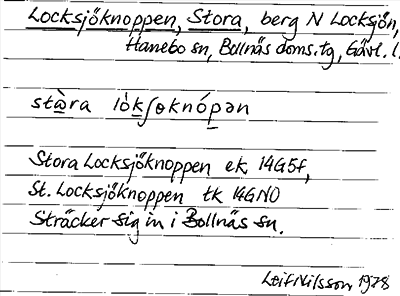 Locksjöknoppen, Stora, berg N Locksjön,
Hanebo sn, Bollnäs doms.tg, Gävl. l.
stɷ̀ra lòkʃɵknópən
Stora Locksjöknoppen ek 14G5f,
St. Locksjöknoppen tk 14GNO
Sträcker sig in i Bollnäs sn.
Leif Nilsson 1978